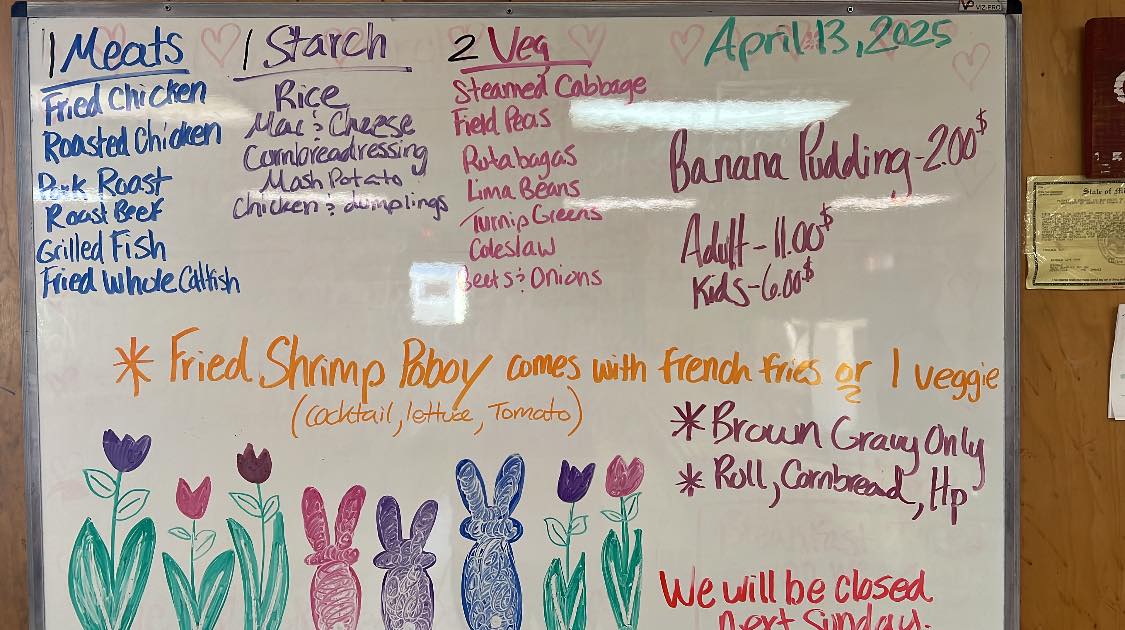 VIZ-PRO
1 Meats
Fried Chicken
Roasted Chicken
Pork Roast
Roast Beef
Grilled Fish
Fried Whole Catfish
1 Starch
Rice
Mac & Cheese
Cornbreadressing
Mash Potato
Chicken & dumplings
2 Veg
Steamed Cabbage
Field Peas
Rutabagas
Lima Beans
Turnip Greens
Coleslaw
Beets & Onions
April 13, 2025
Banana Pudding - 2.00$
Adult - 11.00$
Kids - 6.00$
* Fried Shrimp Poboy comes with french fries or 1 veggie
(cocktail, lettuce, Tomato)
* Brown Gravy Only
* Roll, Cornbread, Hp
We will be closed
next Sunday.
State of